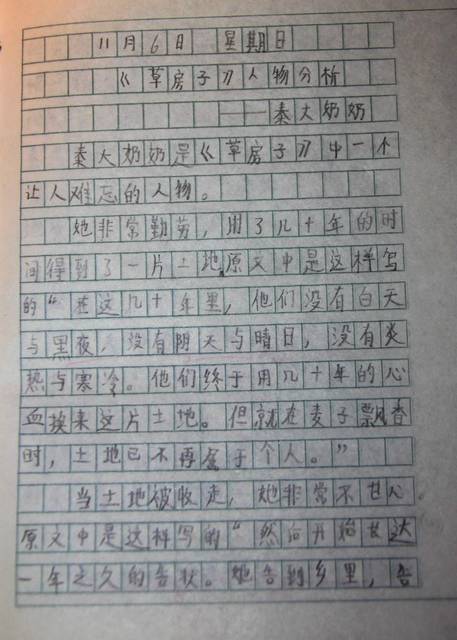 11月6日 星期日
《草房子》人物分析
——秦大奶奶
秦大奶奶是《草房子》中一个
让人难忘的人物。
她非常勤劳，用了几十年的时
间得到了一片土地。原文中是这样写
的“在这几十年里，他们没有白天
与黑夜，没有阴天与晴日，没有炎
热与寒冷。他们终于用几十年的心
血换来这片土地。但就在麦子飘香
时，土地已不再属于个人。”
当土地被收走，她非常不甘心。
原文中是这样写的“然后开始长达
一年之久的告状。她告到乡里，告